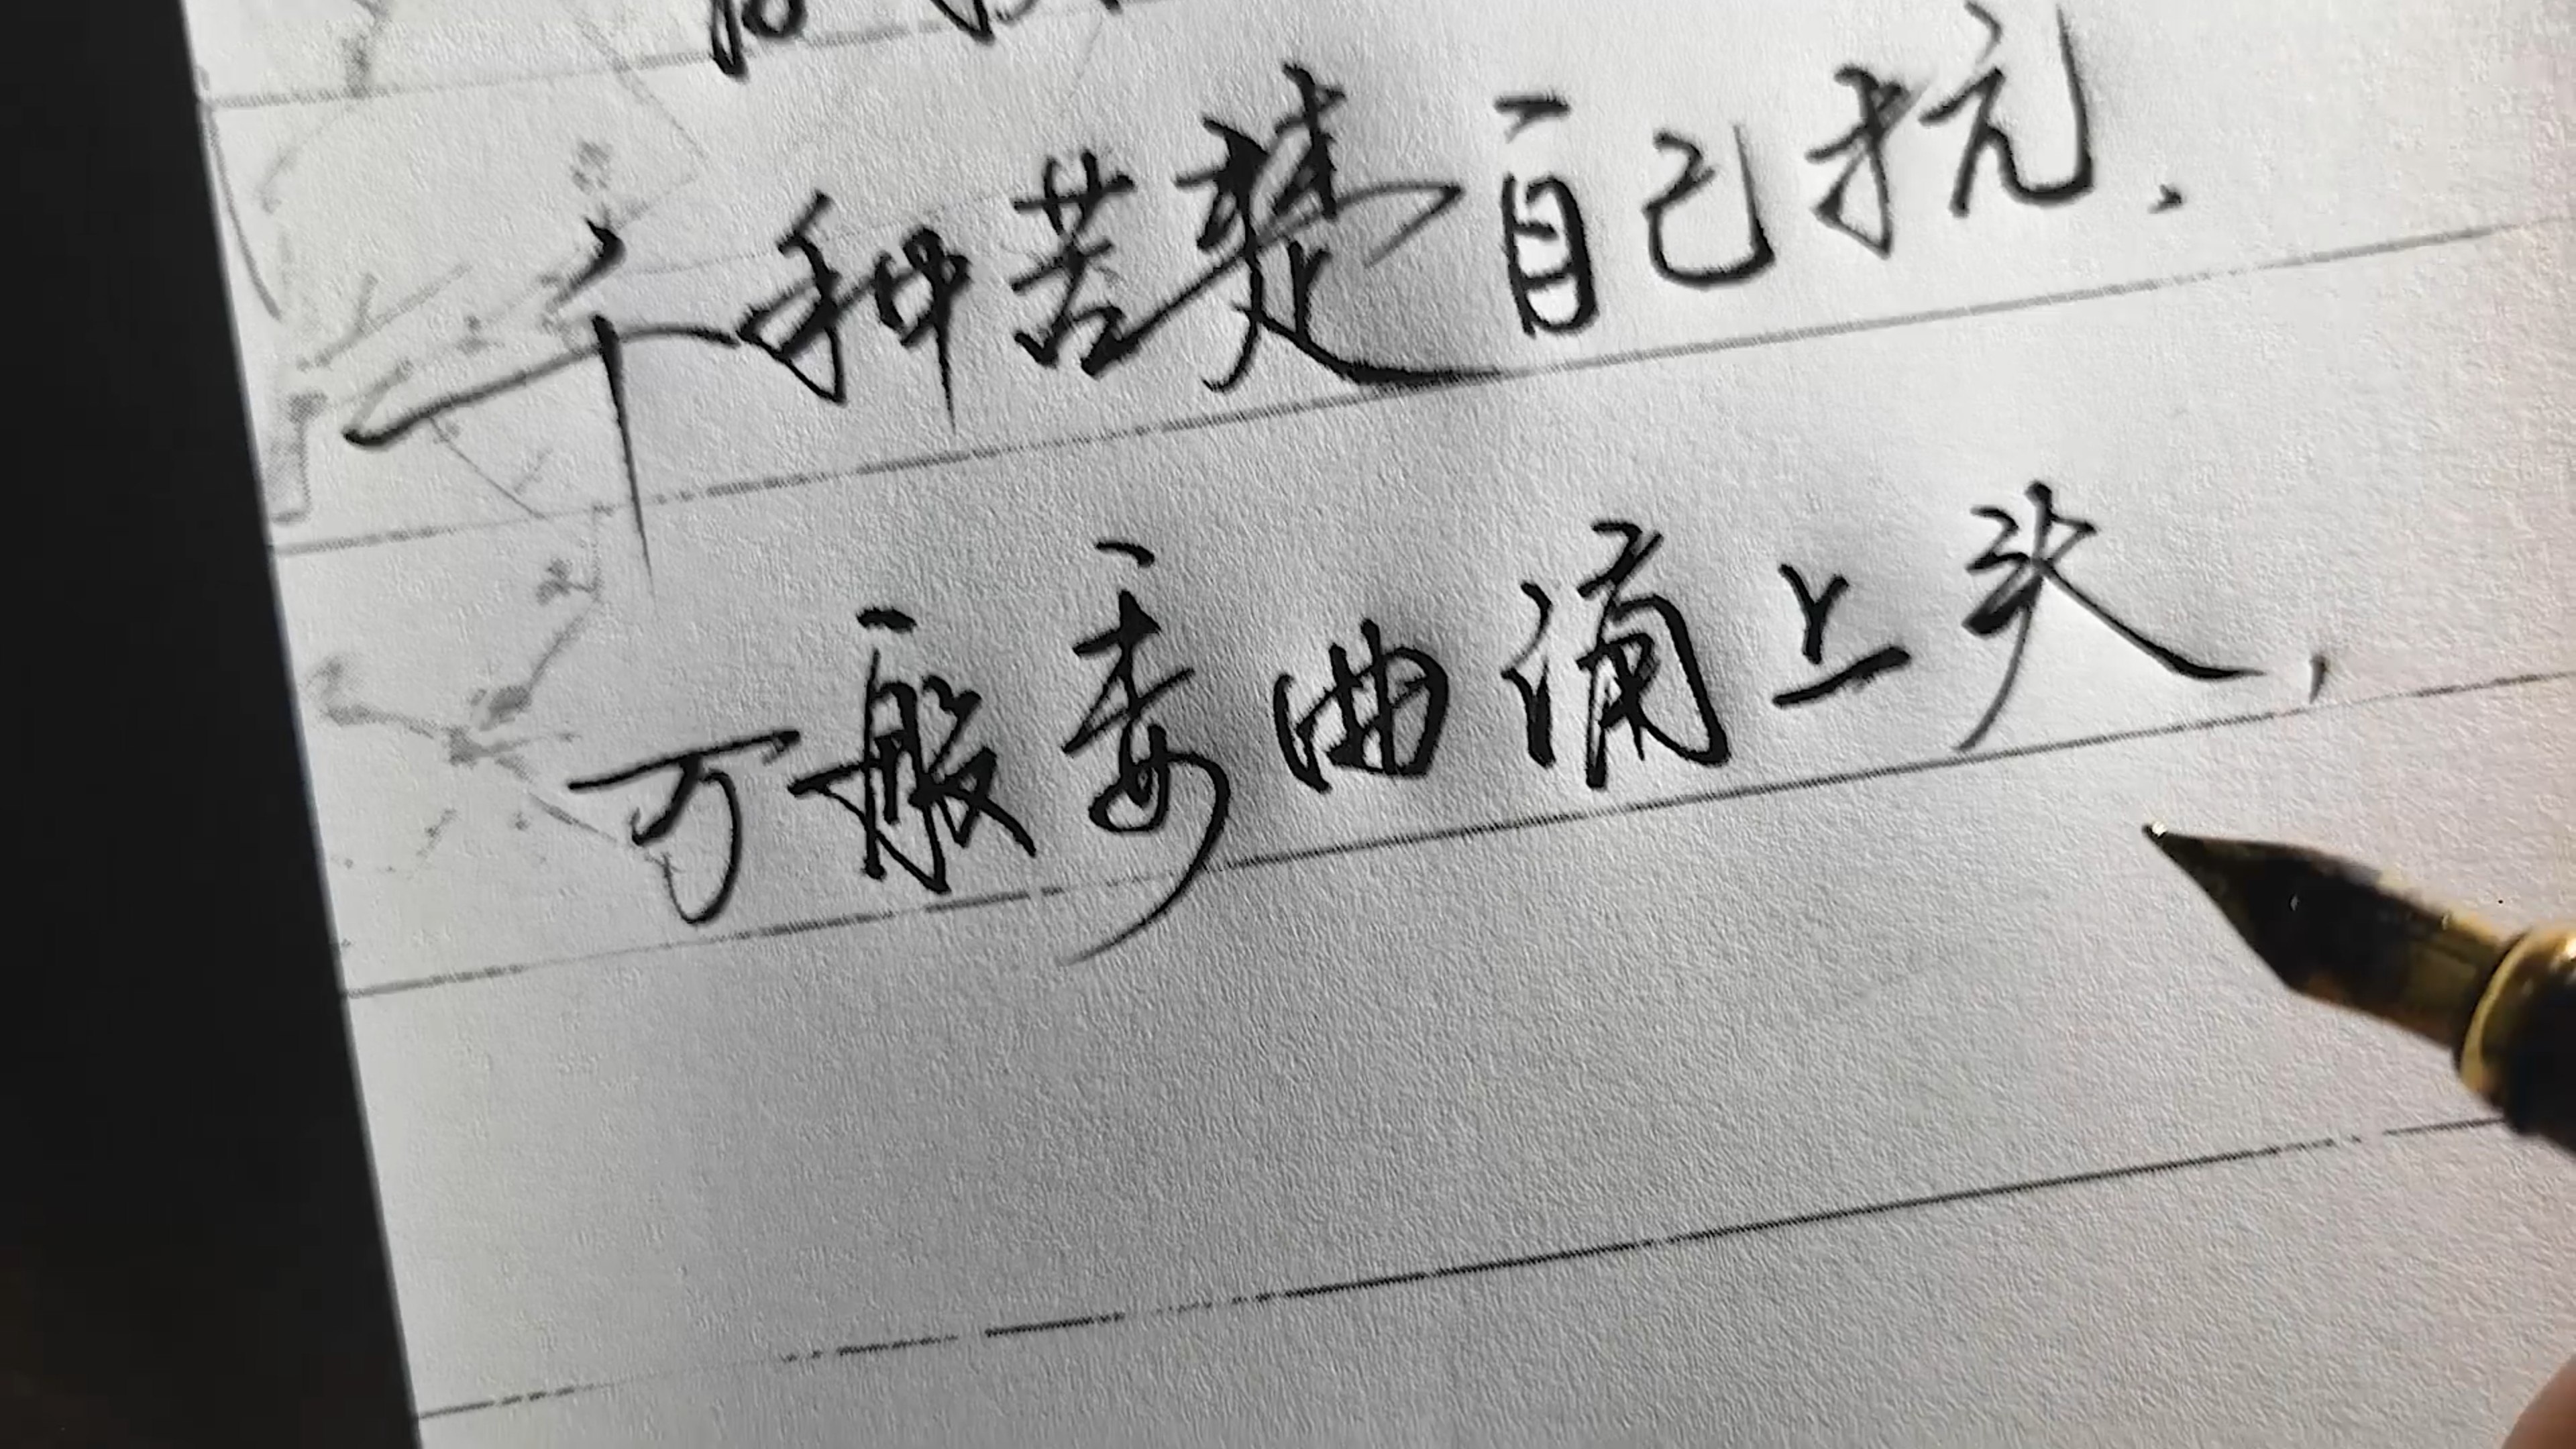 千种苦楚自己抗，
万般委曲涌上头，